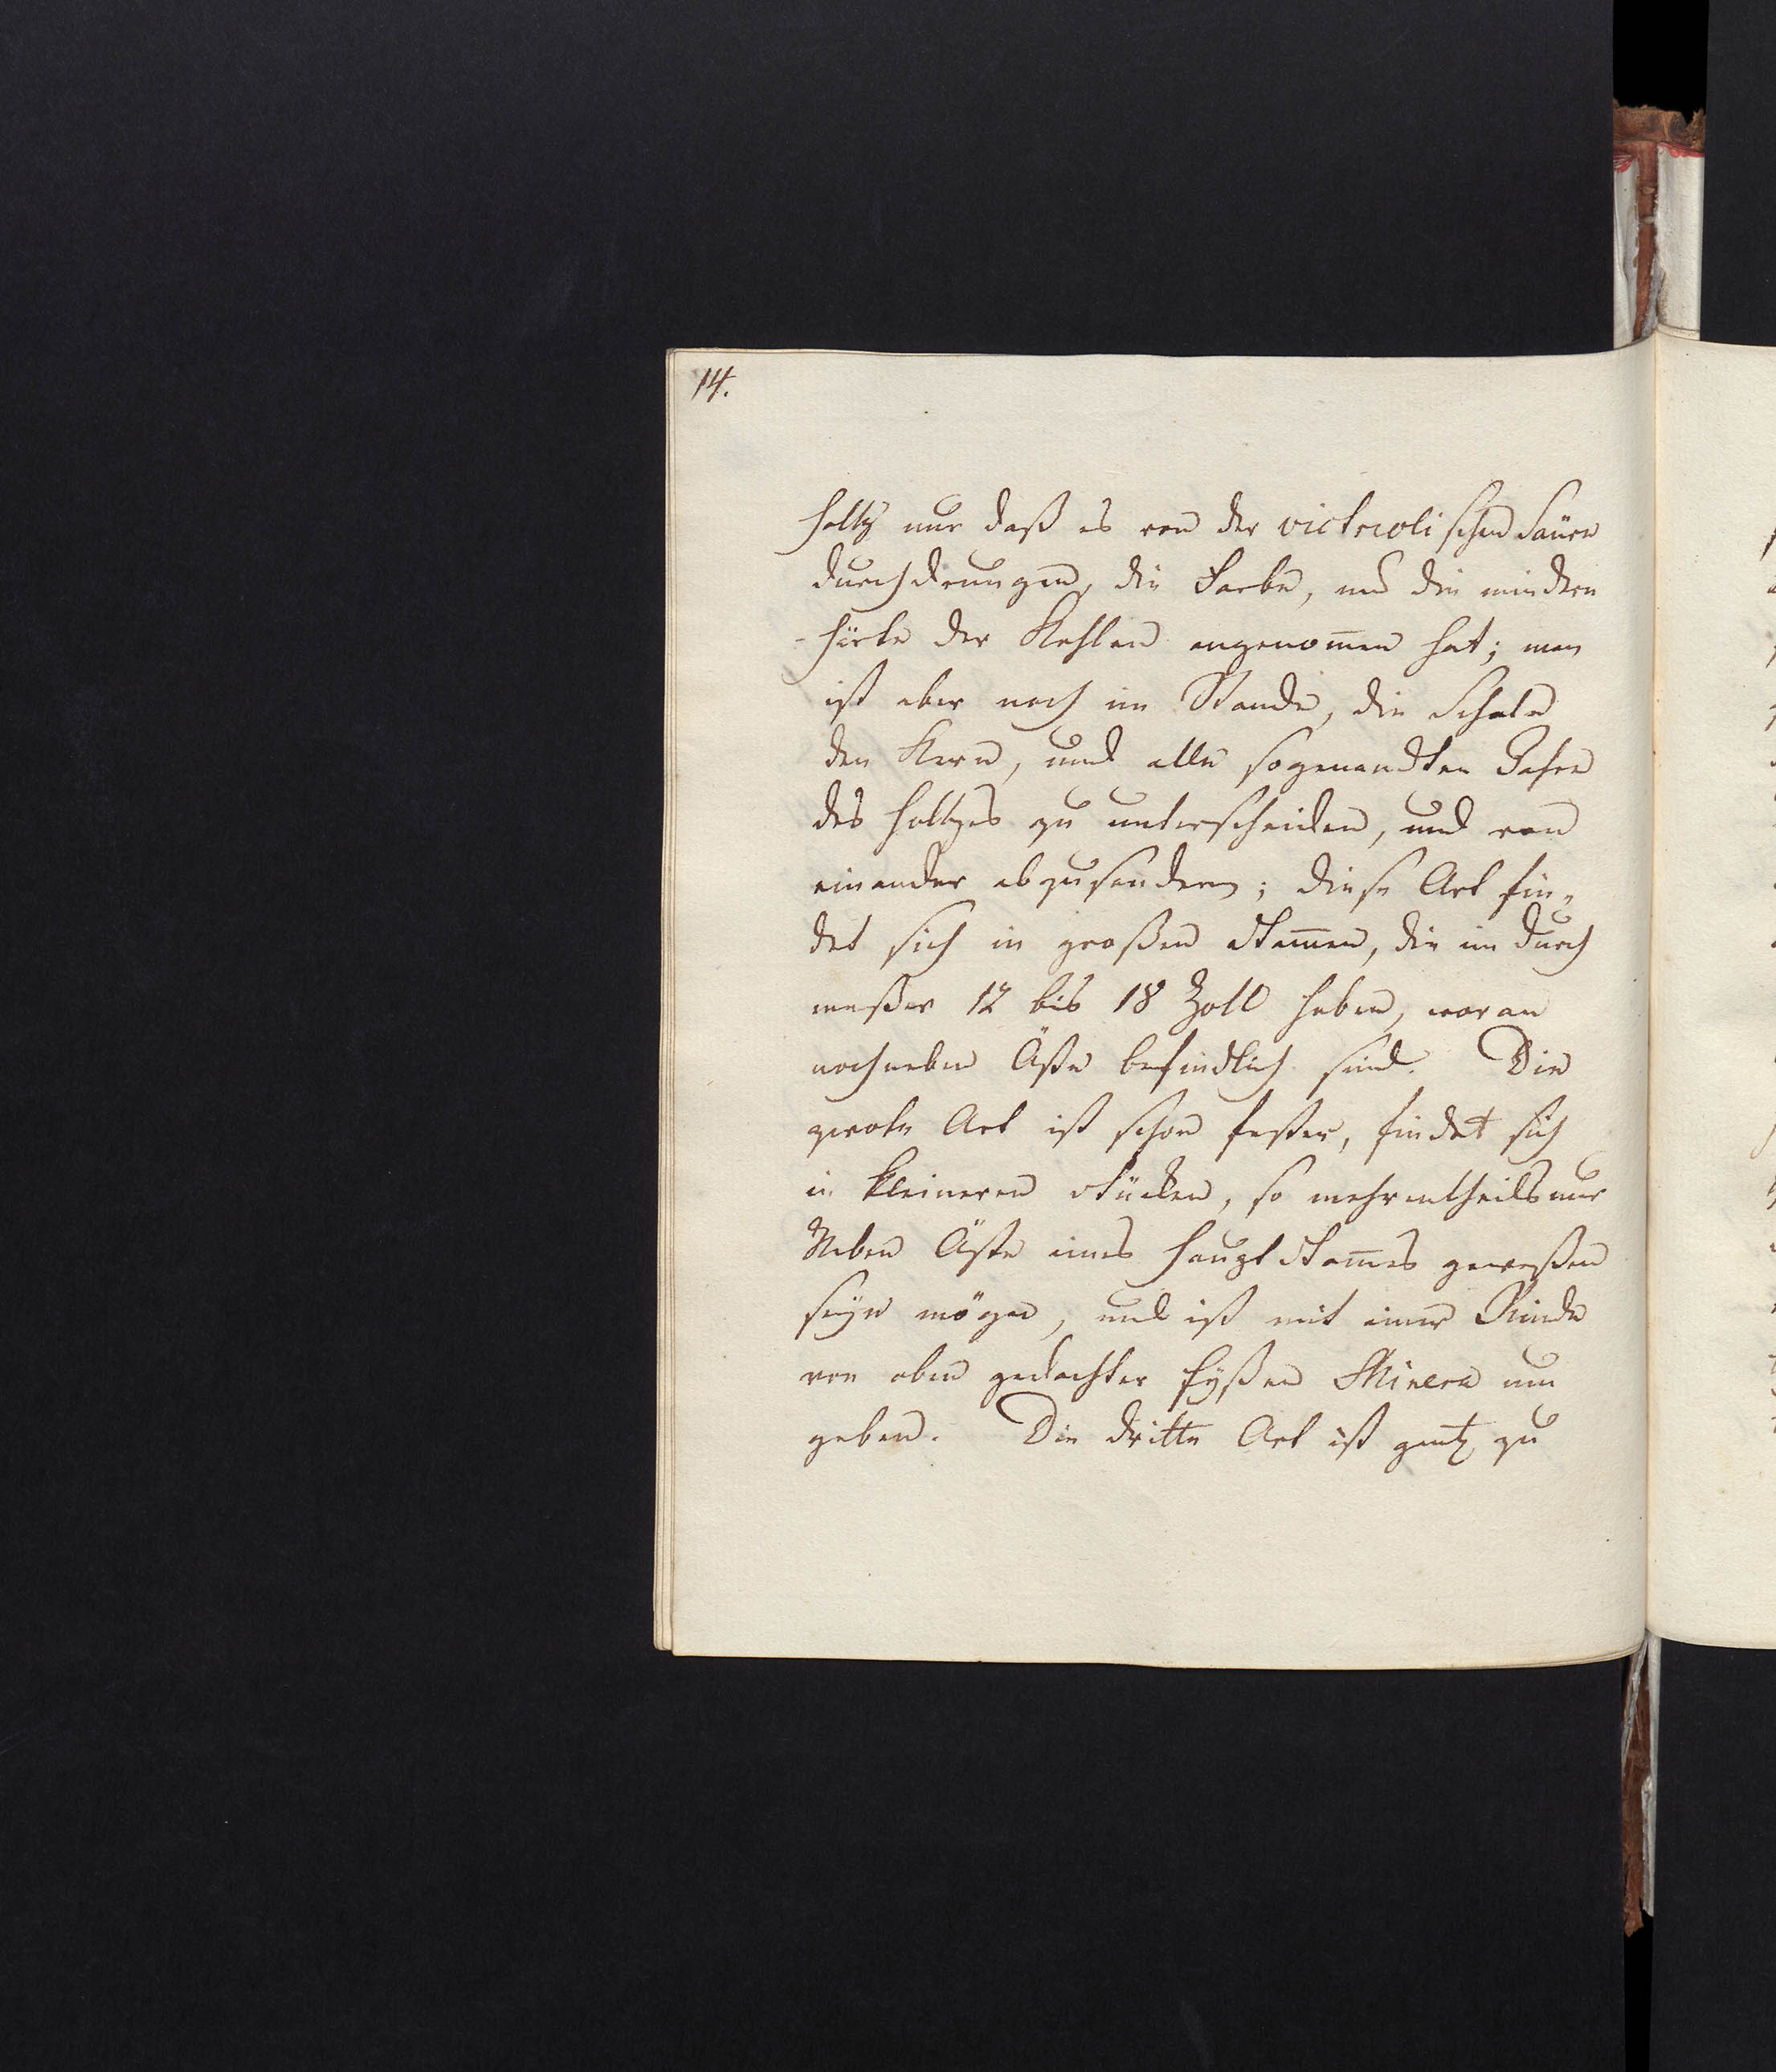 14.
Holtz nur daß es von der victriolischen Säure
durchdrungen, die Farbe, und die mindere
Härte der Kohlen angenom̅en hat; man
ist aber noch im Stande, die Schale
den Kern, und alle sogenandten Jahre
des Holtzes zu unterscheiden, und von
einander abzusondern; diese Art fin=
det sich in großen Stam̅en, die im Durch
meßer 12 bis 18 Zoll haben, woran
noch neben Äste befindlich sind. Die
zwote Art ist schon fester, findet sich
in kleineren Stücken, so mehrentheils nur
Neben Äste eines Haupt Stam̅es geweßen
seyn mögen, und ist mit einer Rinde
von oben gedachter Eyßen Minera um
geben. Die dritte Art ist gantz zu